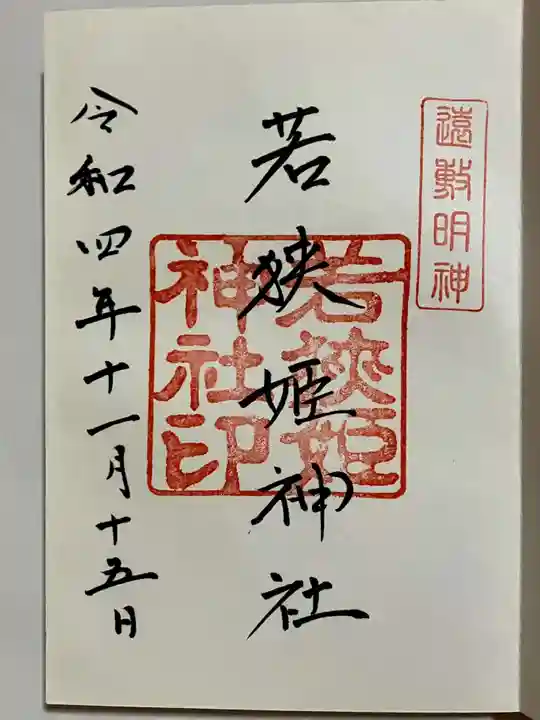 遠敷明神
若狭姫神社
若狭姫
神社印
令和四年十一月十五日